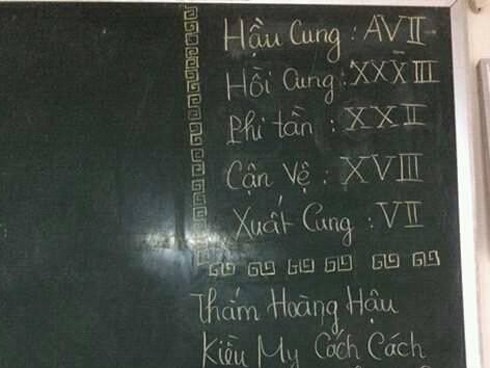 Hậu Cung : AVII
Hồi Cung : XXXIII
Phi tần : XXII
Cận Vệ : XVIII
Xuất Cung : VII
Thám Hoàng Hậu
Kiều My Cách Cách